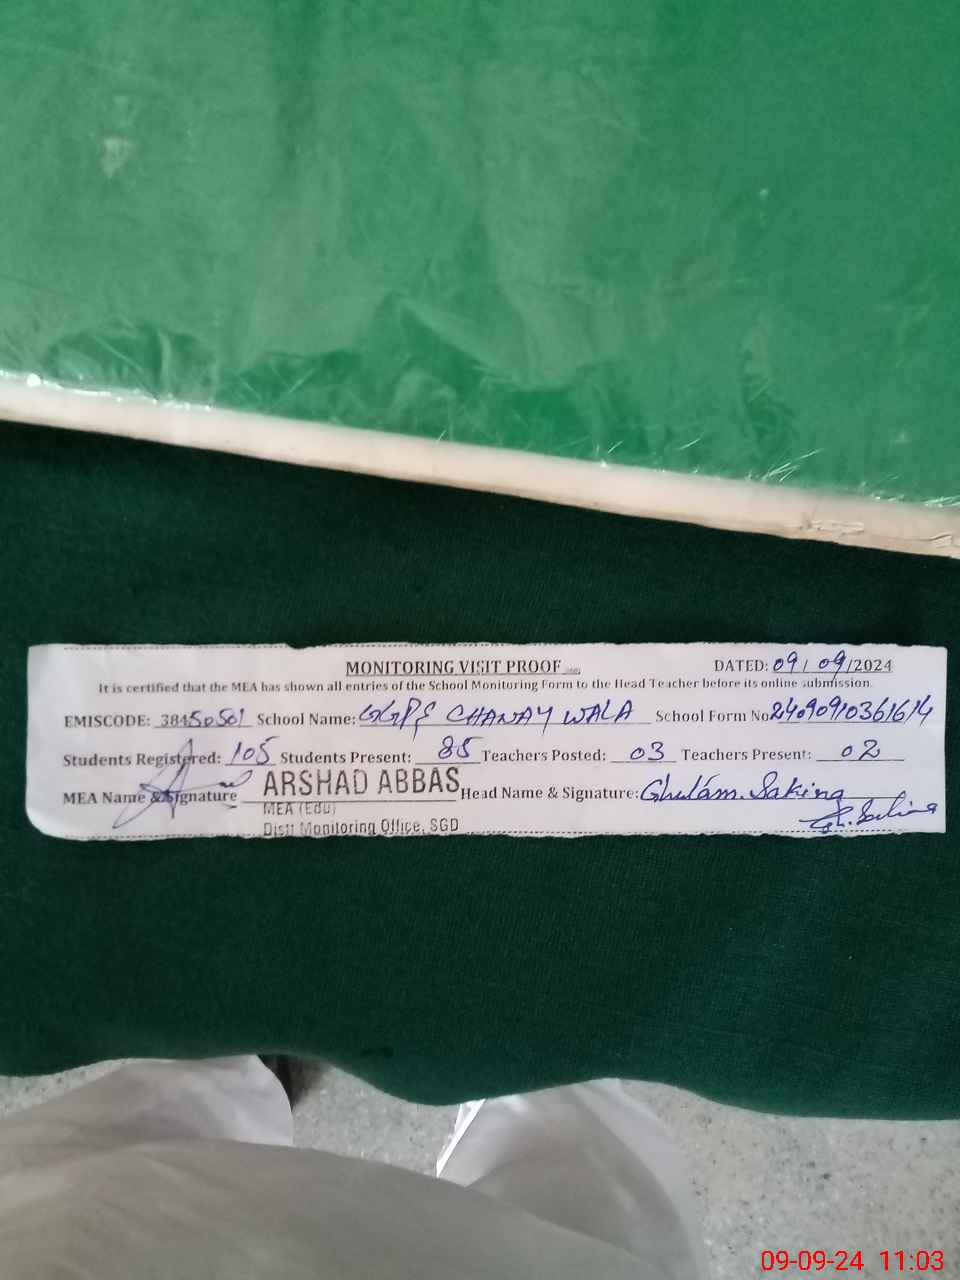 MONITORING VISIT PROOF DATED: 09/09/2024
It is certified that the MEA has shown all entries of the School Monitoring Form to the Head Teacher before its online submission.
EMISCODE: 38450501 School Name: GGPS CHANAY WALA School Form No 24090910361614
Students Registered: 105 Students Present: 85 Teachers Posted: 03 Teachers Present: 02
MEA Name & Signature ARSHAD ABBAS Head Name & Signature: Ghulam. Sakina
MEA (Edu)
Distt Monitoring Office, SGD
09-09-24 11:03